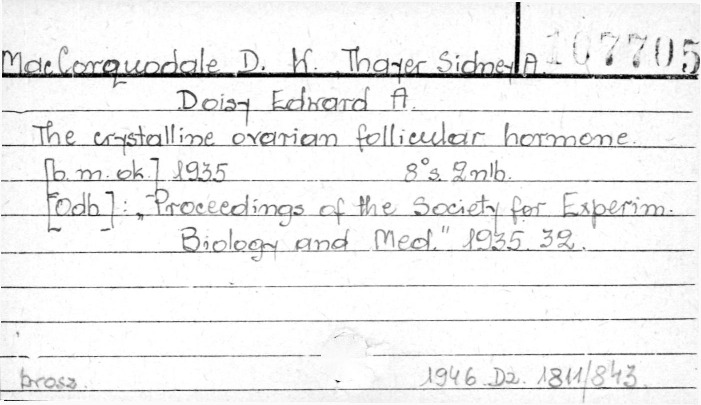 MacCorquodale D. W. Thayer Sidney A. 167705
Doisy Edward A.
The crystalline ovarian follicular hormone.
[b. m. ok.] 1935 8°s. 2nlb.
[Odb]: „Proceedings of the Society for Experim.
Biology and Med." 1935. 32.
brosz. 1946 Dz. 1811/843.